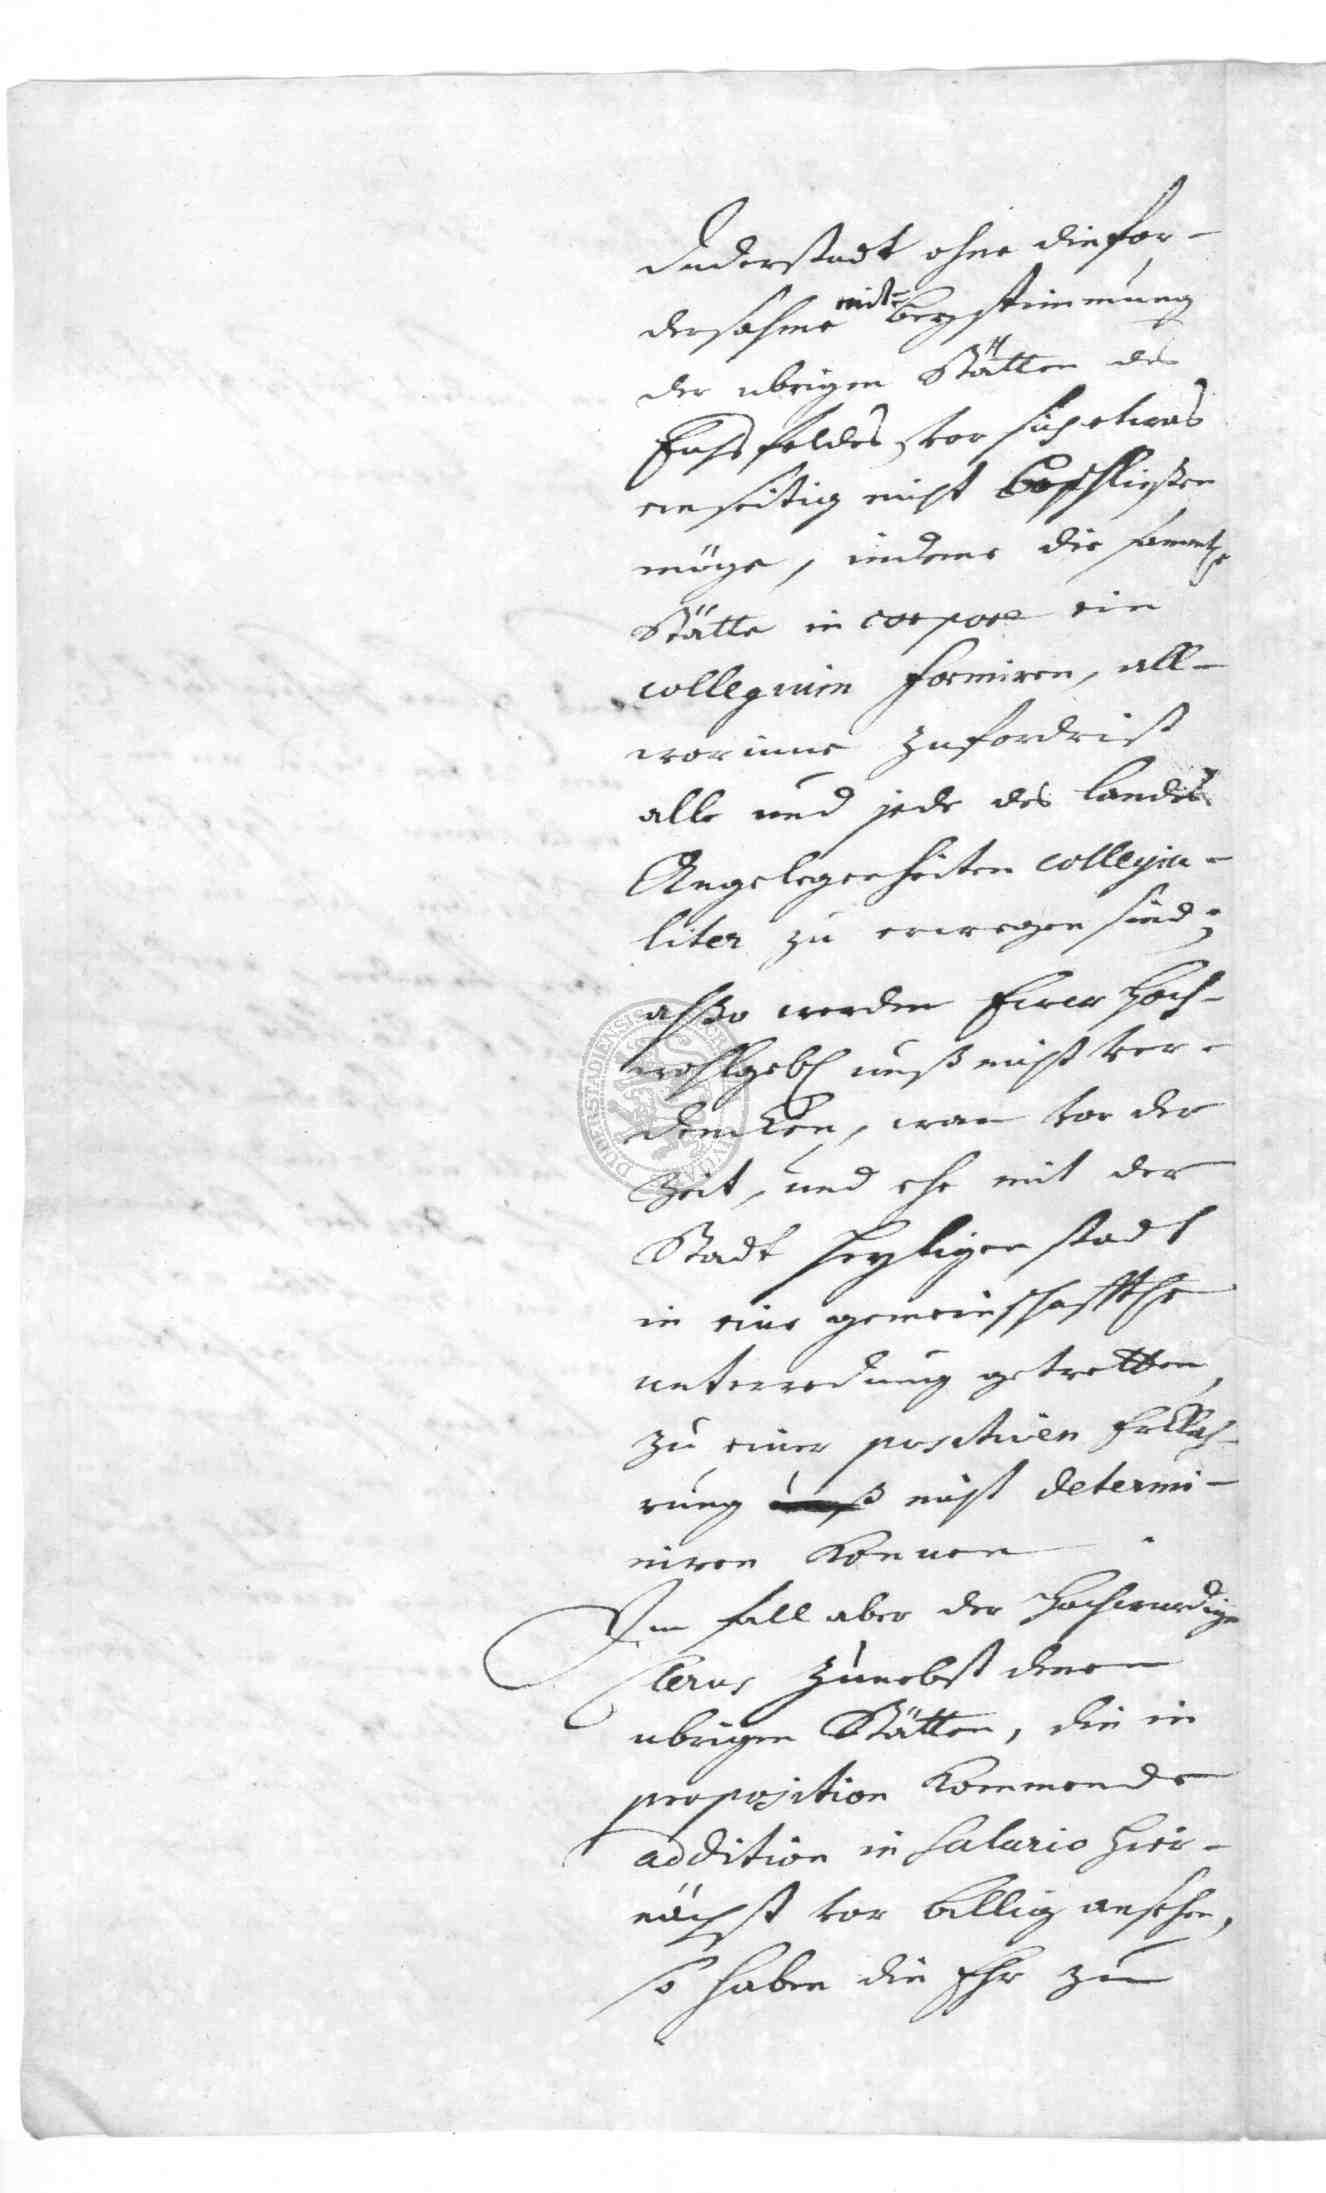 Duderstadt ohne die for-
dersahme mit-beystimmung
der ubrigen Stätten des
Eichsfeldes vor sich etwas
einseitig nicht beschließen
möge, indeme die sammtl.
Stätte in corpore ein
collegium formiren, all-
worinne zufordrist
alle und jede des landes
Angelegenheiten collegia-
liter zu erwegen sind;
alßo werden Ewer Hoch-
wohlgebl unß nicht ver-
dencken, wan vor der
Zeit, und ehe mit der
Stadt Heyligenstadt
in eine gemeinschafftl.
unterredung getretten,
zu einer positiven Erkläh-
rung unß nicht determi-
niren können
Im fall aber der Hochwürdige
Clerus zunebst denen
ubrigen Stätten, die in
proposition kommende
addition in Salario hier-
nächst vor billig ansehen,
so haben die Ehr zu
DUDERSTADIENSIS